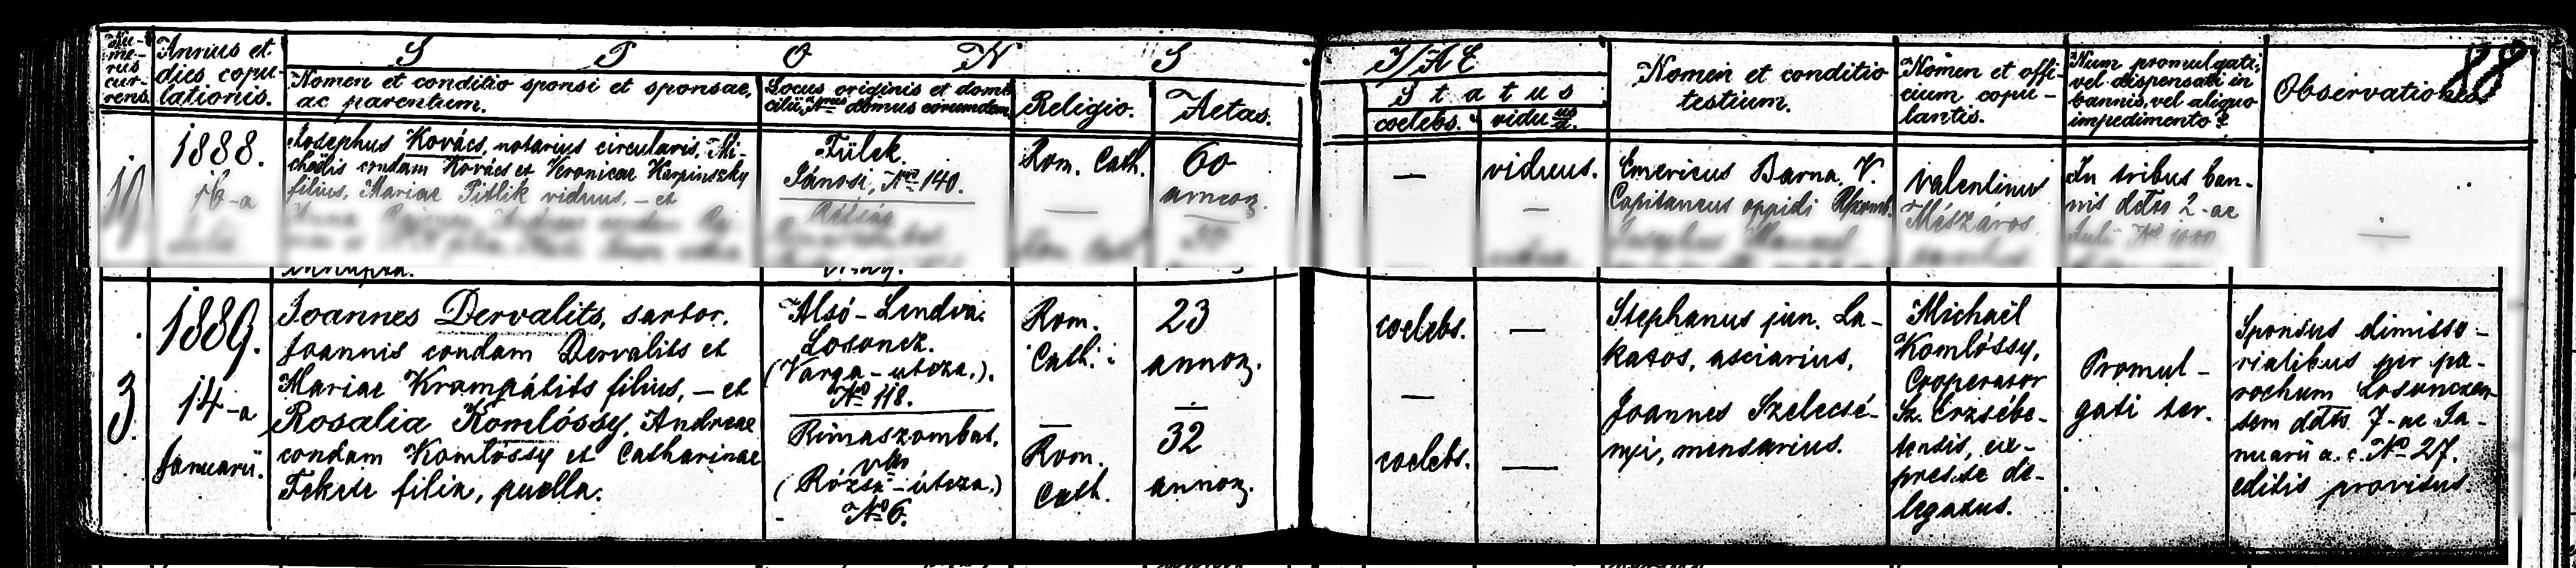 Nu-
me-
rus
cur-
rens.
Annus et
dies copu-
lationis.
S P O N S
Nomen et conditio sponsi et sponsae,
ac parentum.
Locus originis et domi-
cilii, Nrus domus eorumdem.
Religio.
Aetas.
I/AE
Status
coelebs.
viduus
a.
Nomen et conditio
testium.
Nomen et offi-
cium copu-
lantis.
Num promulgati,
vel dispensati in
bannis, vel aliquo
impedimento?
Observationes
88
19.
1888.
16-a
Josephus Kovács, notarius circularis, Mi-
chaëlis condam Kovács et Veronicae Karpinszky
filius, Mariae Pitlik viduus, – et
Fülek.
Jánosi, Nro 140.
Rom. Cath.
—
60
annor.
—
—
viduus.
—
Emericus Barna, V.
Capitaneus oppidi
Valentinus
Mészáros
In tribus ban-
nis ddto 2-ae
Juli No 1000
—
innupta.
3.
1889.
14-a
Januarii.
Joannes Dervalits, sartor,
Joannis condam Dervalits et
Mariae Krampátits filius, – et
Rosalia Komlóssy, Andreae
condam Komlóssy et Catharinae
Fekete filia, puella.
Alsó-Lendva.
Losoncz.
(Varga-utcza.).
No 118.
Rimaszombat.
(Rózsa-utcza.)
No 6.
Rom.
Cath.
—
Rom.
Cath.
23
annor.
—
32
annor.
coelebs.
—
coelebs.
—
—
Stephanus jun. La-
katos, asciarius,
Joannes Szelecsé-
nyi, mensarius.
Michaël
Komlóssy,
Cooperator
Sz. Erzsébe-
tensis, ex-
presse de-
legatus.
Promul-
gati ter.
Sponsus dimisso-
rialibus per pa-
rochum Losonczen-
sem ddto 7-ae Ja-
nuarii a. c. No 27.
editis provisus.